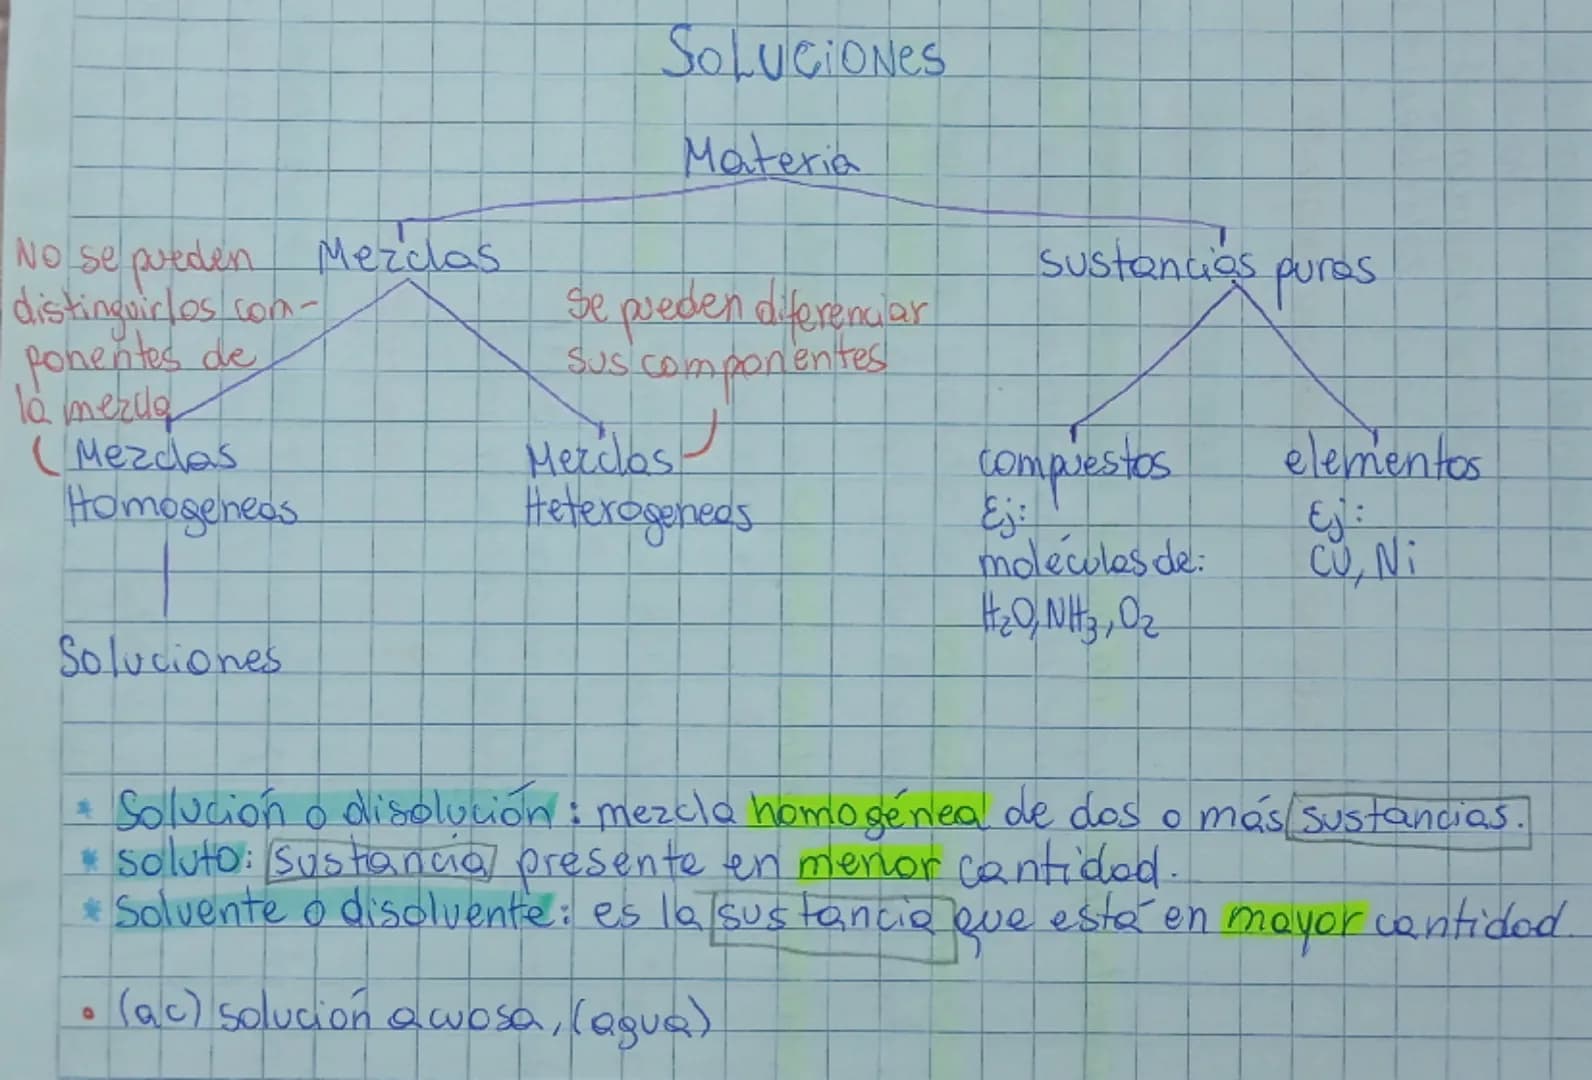 SOLUCIONES
Materia
Mezclas
sustancias puras
No se pueden
distinguirlos com-
ponentes de
la mezcla
Se pueden diferenciar
sus componentes
Mezclas
Homogeneas
Mezclas
Heterogeneas
compuestos
Ej:
moléculas de:
H₂O, NH₃, O₂
elementos
Ej:
CU, Ni
Soluciones
* Solución o disolución: mezcla homogénea de dos o más sustancias.
* soluto: sustancia presente en menor cantidad.
* Solvente o disolvente: es la sustancia que está en mayor cantidad.
• (ac) solución acuosa, (agua)